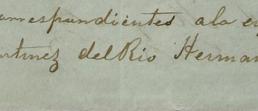 correspondientes a la
Martinez del Rio Herman